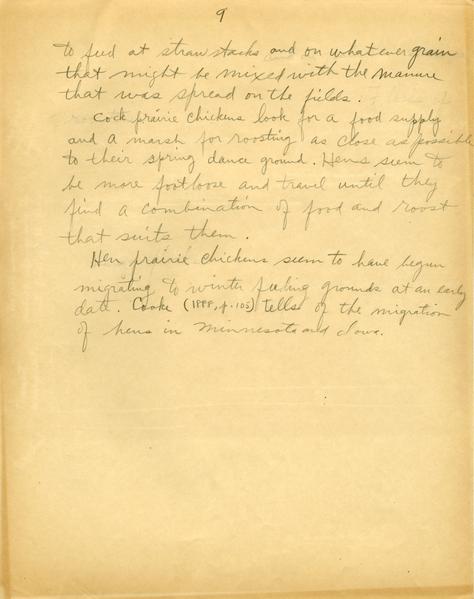 9
to feed at straw stacks and on whatever grain
that might be mixed with the manure
that was spread on the fields.
Cock prairie chickens look for a food supply
and a marsh for roosting as close as possible
to their spring dance ground. Hens seem to
be more footloose and travel until they
find a combination of food and roost
that suits them.
Hen prairie chickens seem to have begun
migrating to winter feeding grounds at an early
date. Cooke (1888, p. 105) tells of the migration
of hens in Minnesota and Iowa.